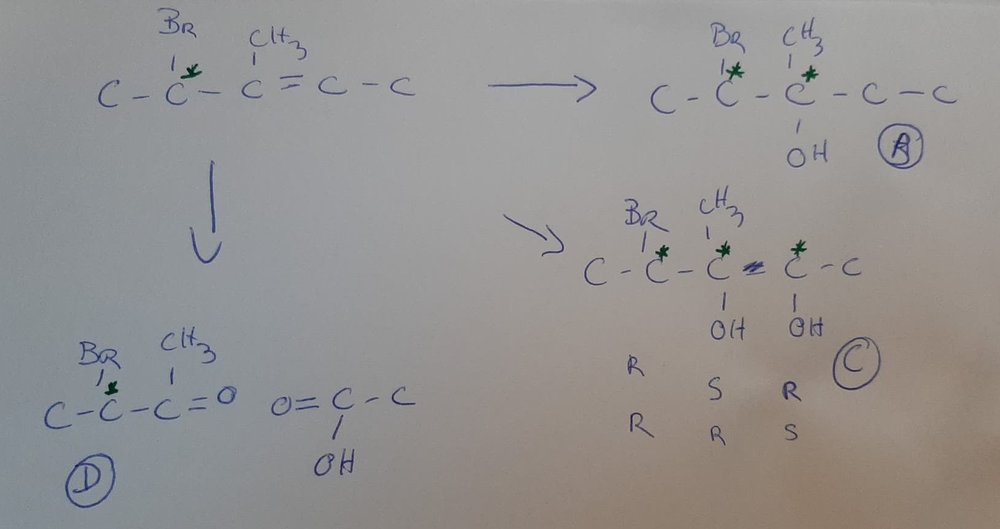 BR CH3
C - C* - C = C - C
BR CH3
C - C* - C* - C - C
OH B
BR CH3
C - C* - C* - C* - C
OH OH
C
R S R
R R S
BR CH3
C - C* - C = O O = C - C
OH
D